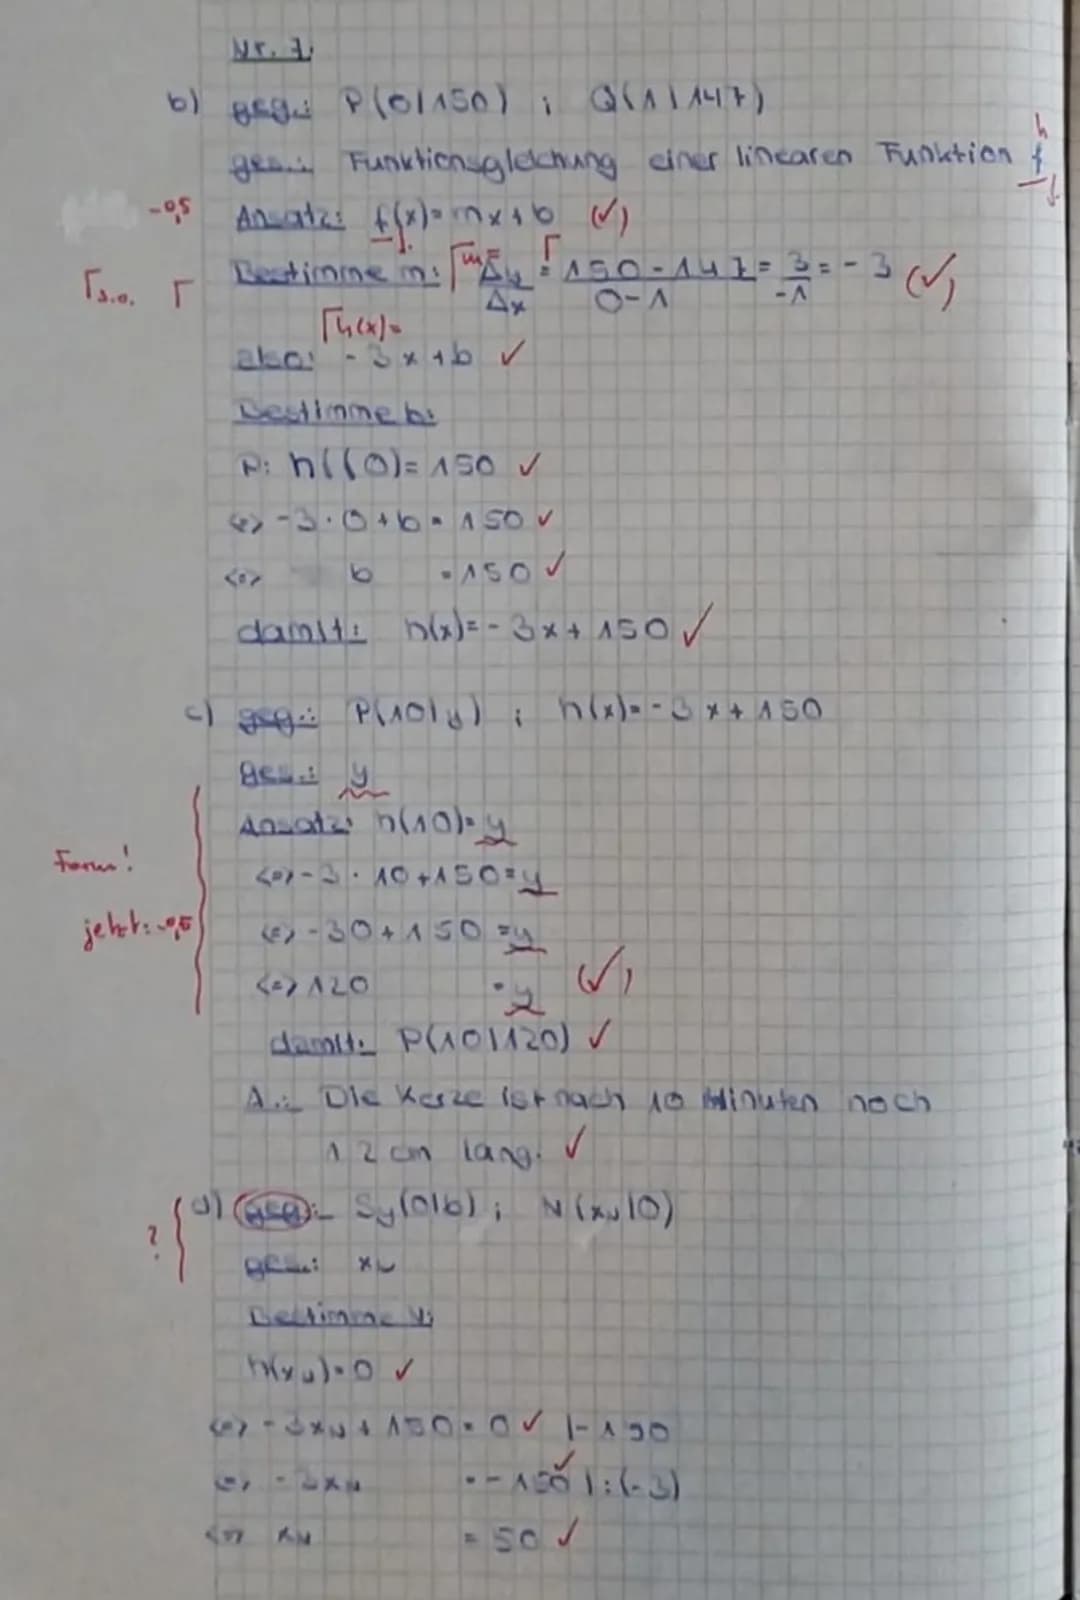 Nr. 7
b) geg.: P(0|150) ; Q(1|147)
h
ges.: Funktionsgleichung einer linearen Funktion f
-0,5 Ansatz: f(x)=mx+b (✓)
Γs.o. Γ Bestimme m: Γm= Δy/Δx Γ= (150-147)/(0-1) = 3/-1 = -3 (✓)
Γh(x)=
also: -3x+b ✓
Bestimme b:
P: h((0)=150 ✓
<=> -3·0+b=150 ✓
<=> b =150 ✓
damit: h(x)=-3x+150 ✓
c) geg.: P(10|y) ; h(x)=-3x+150
ges.: y
Ansatz: h(10)=y
Form! <=> -3·10+150=y
jetzt: -0,5 <=> -30+150=y
<=> 120 =y (✓)
damit: P(10|120) ✓
A.: Die Kerze ist nach 10 Minuten noch
12 cm lang. ✓
? d) geg.: Sy(0|b) ; N(xN|0)
ges.: xN
Bestimme
h(xN)=0 ✓
<=> -3xN+150=0 ✓ |-150
<=> -3xN =-150 ✓ |:(-3)
<=> xN =50 ✓